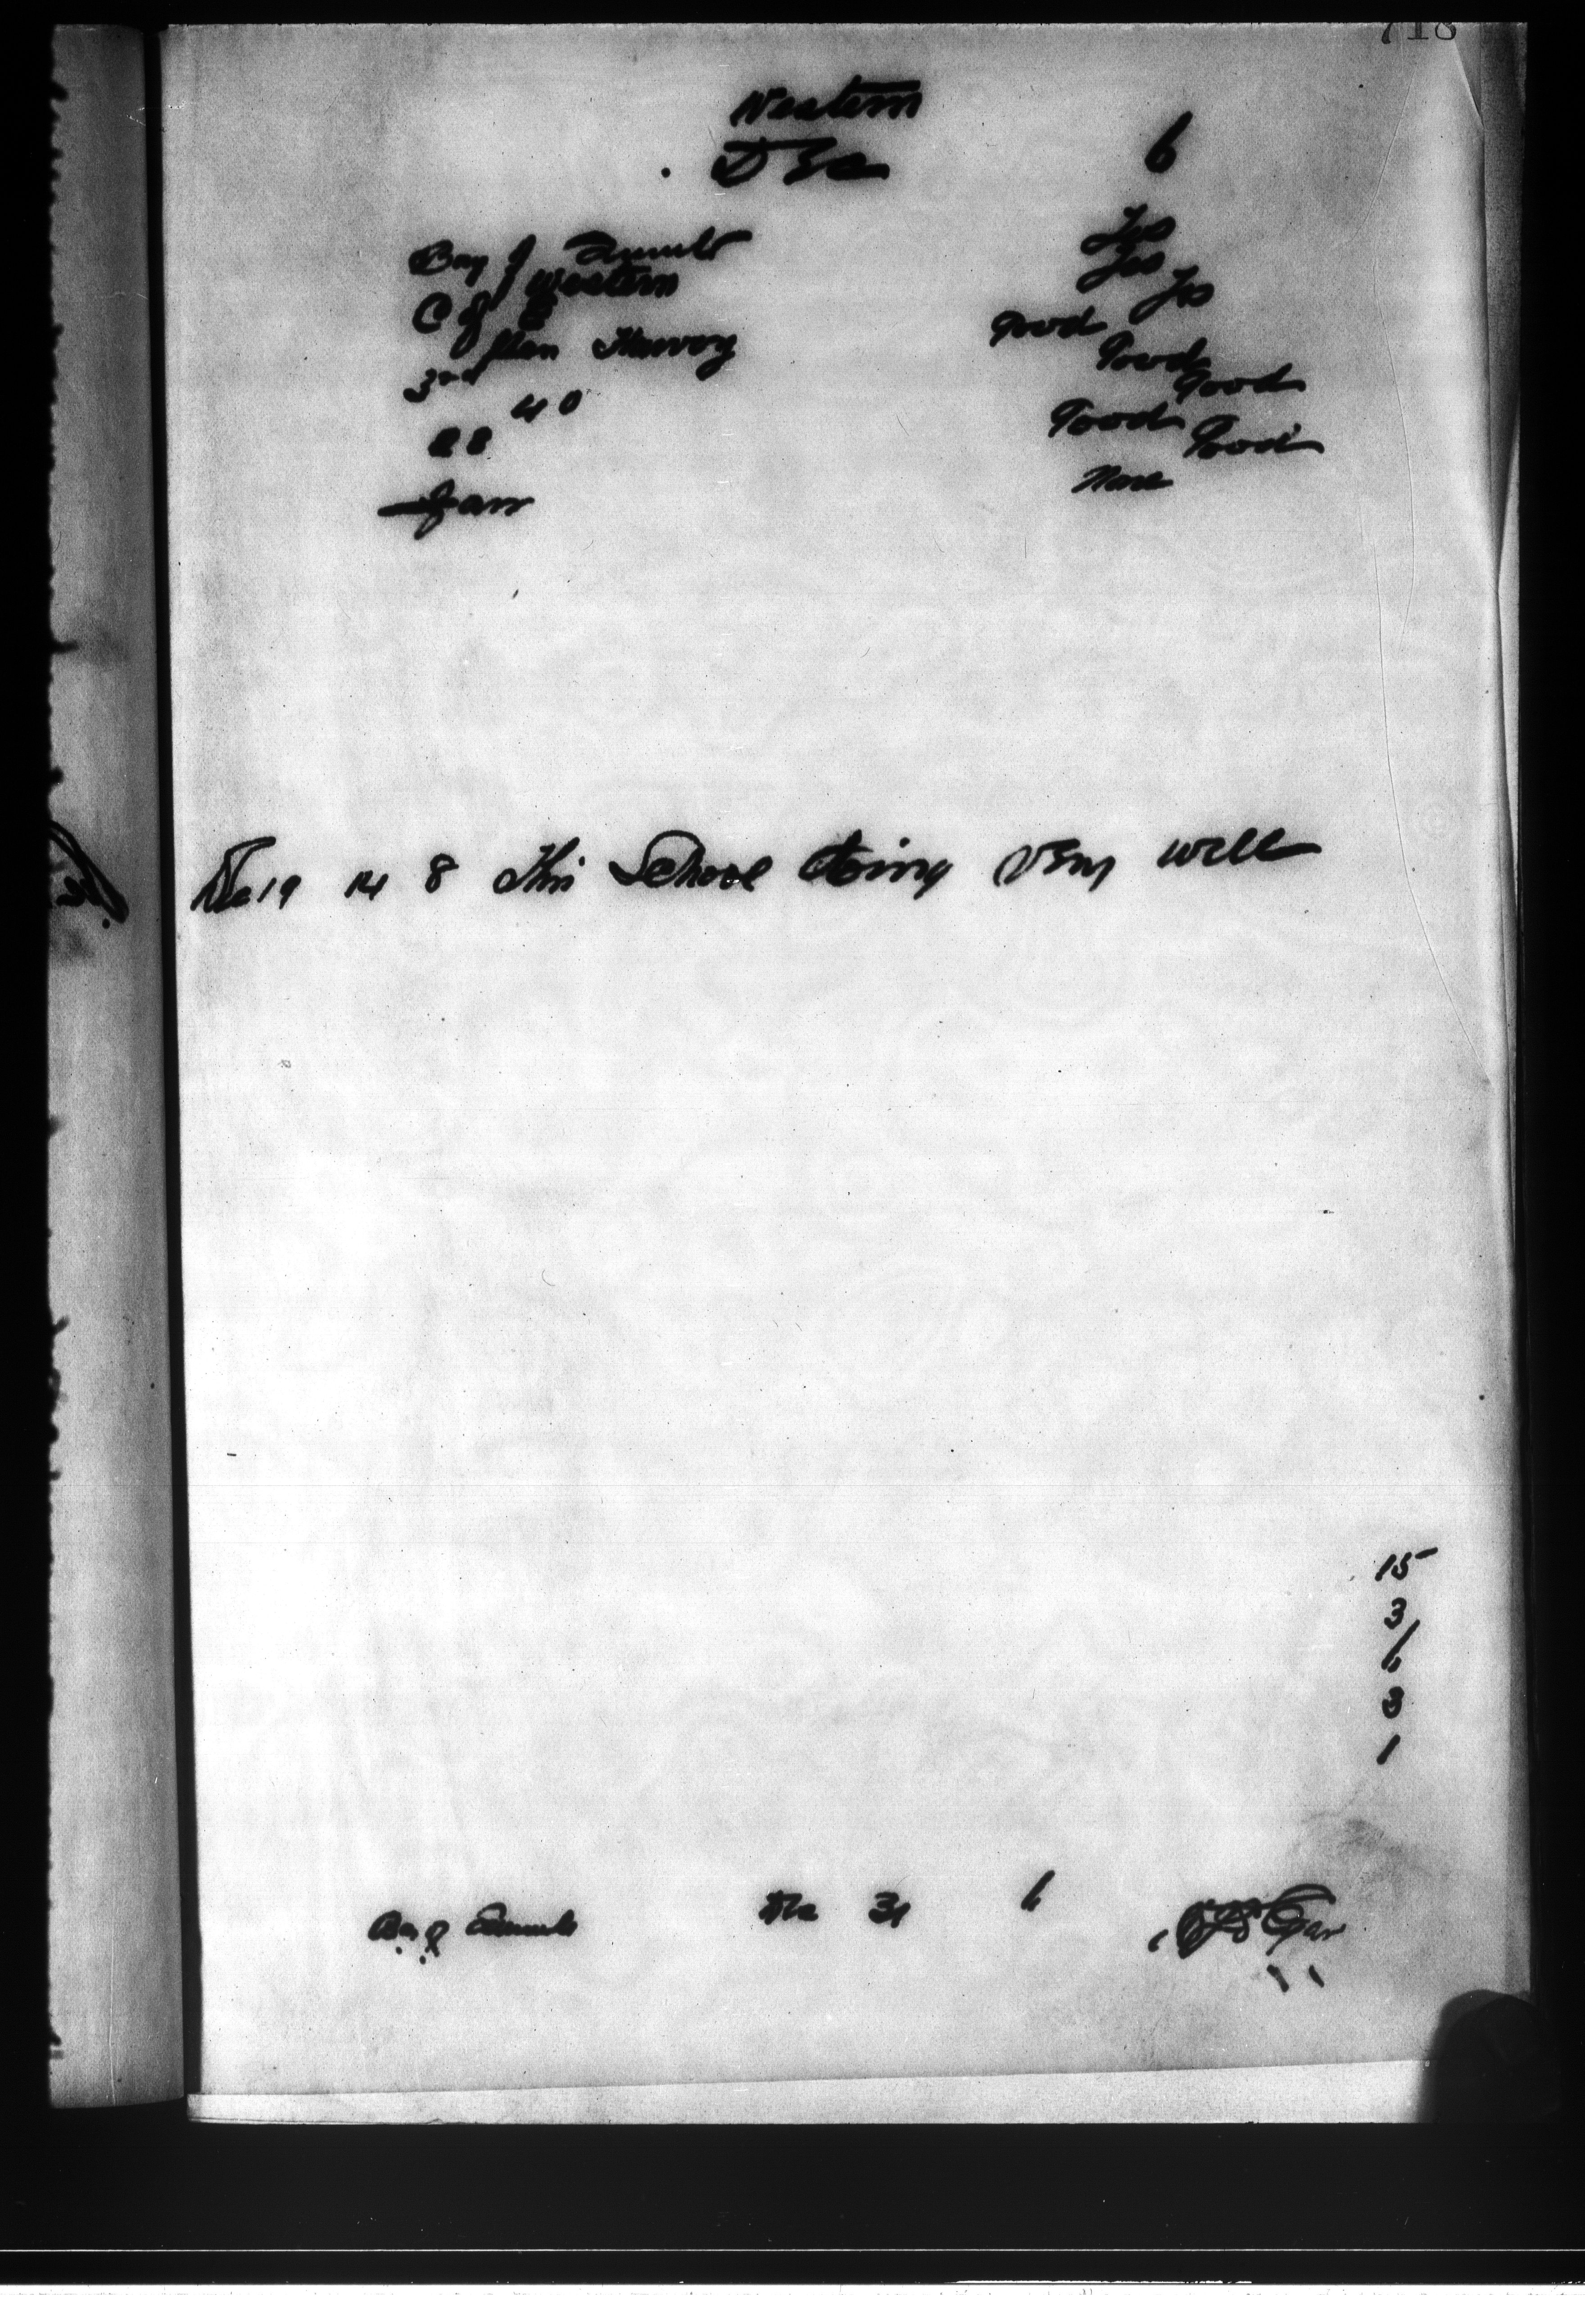 718
Western
Dec 6
Bay of Quinte Yes
Western Yes
C of E Yes
Good
Miss Harvey Good
3rd Good
40 Good
28 Good
None
Dec 19 14 8 This School doing very well
15
3
6
3
1
Bay of Quinte Dec 31 6